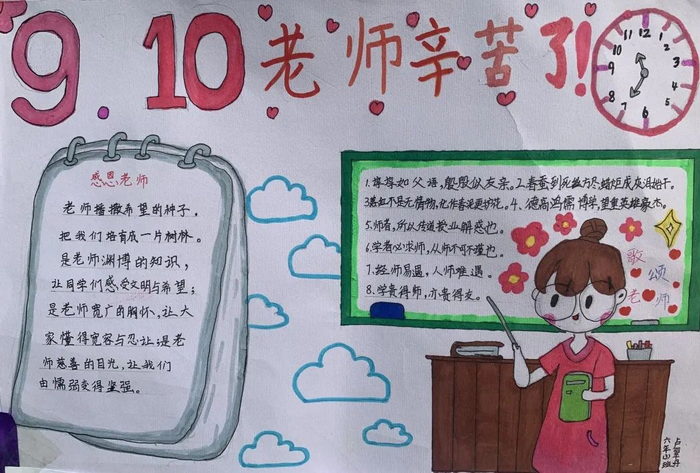 9.10老师辛苦了!
12
11
1
10
2
9
3
8
4
7
5
6
感恩老师
老师播撒希望的种子,
把我们培育成一片树林。
是老师渊博的知识,
让同学们感受文明与希望;
是老师宽广的胸怀,让大
家懂得宽容与忍让是老
师慈善的目光,让我们
由懦弱变得坚强。
1.谆谆如父语,殷殷似友亲。2.春蚕到死丝方尽,蜡炬成灰泪始干。
3.落红不是无情物,化作春泥更护花。4、德高鸿儒博学,望重英雄豪杰。
5.师者,所以传道授业解惑也。
6.学者必求师,从师不可不谨也。
7.经师易遇,人师难遇。
8.学贵得师,亦贵得友。
歌
颂
老师
六年